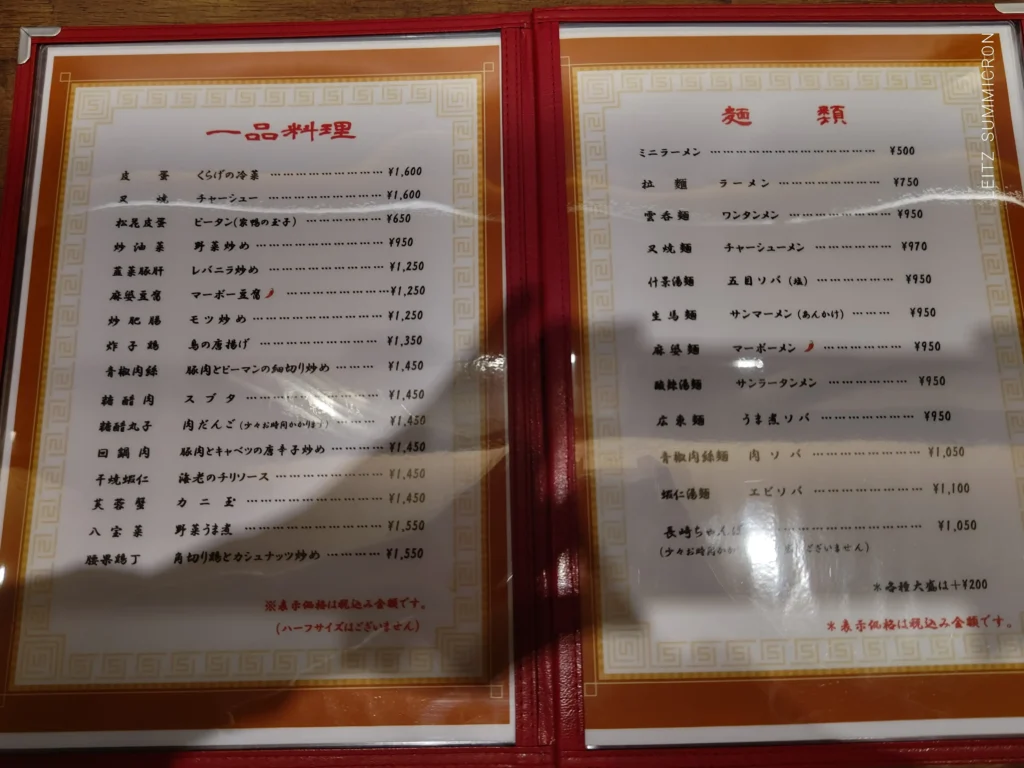 一品料理
皮蛋 くらげの冷菜 ¥1,600
叉焼 チャーシュー ¥1,600
松花皮蛋 ピータン(家鴨の玉子) ¥650
炒油菜 野菜炒め ¥950
韮菜豚肝 レバニラ炒め ¥1,250
麻婆豆腐 マーボー豆腐 ¥1,250
炒肥腸 モツ炒め ¥1,250
炸子鶏 鳥の唐揚げ ¥1,350
青椒肉絲 豚肉とピーマンの細切り炒め ¥1,450
糖醋肉 スブタ ¥1,450
糖醋丸子 肉だんご(少々お時間かかります) ¥1,450
回鍋肉 豚肉とキャベツの唐辛子炒め ¥1,450
干焼蝦仁 海老のチリソース ¥1,450
芙蓉蟹 カニ玉 ¥1,450
八宝菜 野菜うま煮 ¥1,550
腰果鶏丁 角切り鶏とカシュナッツ炒め ¥1,550
※表示価格は税込み金額です。
(ハーフサイズはございません)
麺類
ミニラーメン ¥500
拉麺 ラーメン ¥750
雲呑麺 ワンタンメン ¥950
叉焼麺 チャーシューメン ¥970
什景湯麺 五目ソバ(塩) ¥950
生馬麺 サンマーメン(あんかけ) ¥950
麻婆麺 マーボーメン ¥950
酸辣湯麺 サンラータンメン ¥950
広東麺 うま煮ソバ ¥950
青椒肉絲麺 肉ソバ ¥1,050
蝦仁湯麺 エビソバ ¥1,100
長崎ちゃんぽ ¥1,050
(少々お時間かか ございません)
＊各種大盛は＋¥200
＊表示価格は税込み金額です。
LEITZ SUMMICRON